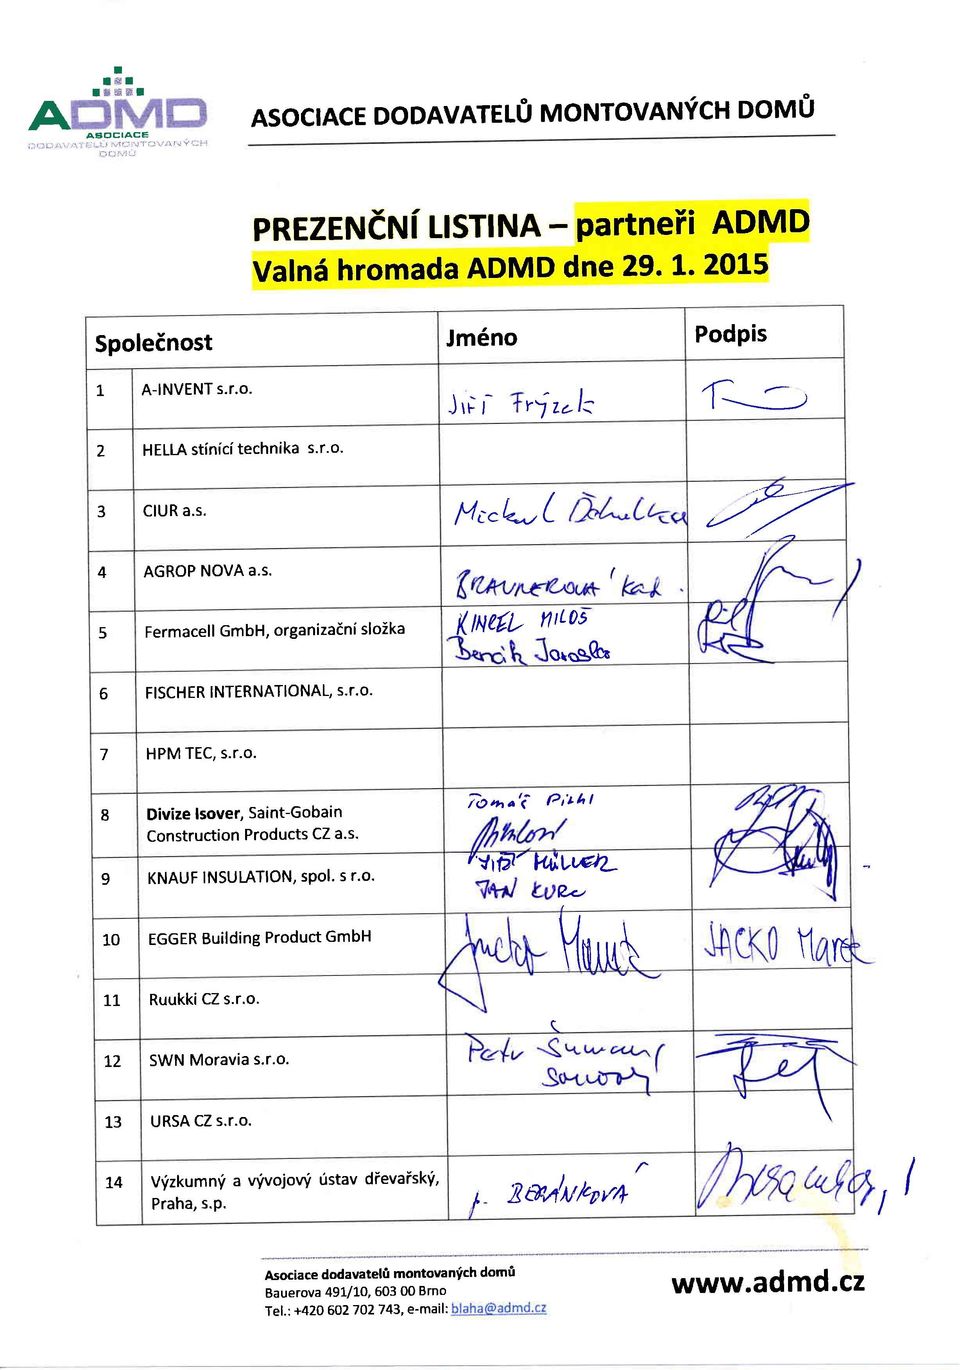 ADMD
ASOCIACE
DODAVATELŮ MONTOVANÝCH
DOMŮ
ASOCIACE DODAVATELŮ MONTOVANÝCH DOMŮ
PREZENČNÍ LISTINA – partneři ADMD
Valná hromada ADMD dne 29. 1. 2015
Společnost Jméno Podpis
1 A-INVENT s.r.o. Jiří Frýzek
2 HELLA stínící technika s.r.o.
3 CIUR a.s.
4 AGROP NOVA a.s. BRAVNEROVA
5 Fermacell GmbH, organizační složka KINCEL MILOŠ
Benčík Jaroslav
6 FISCHER INTERNATIONAL, s.r.o.
7 HPM TEC, s.r.o.
8 Divize Isover, Saint-Gobain Tomáš
Construction Products CZ a.s.
9 KNAUF INSULATION, spol. s r.o. JIŘÍ MÜLLER
JAN
10 EGGER Building Product GmbH JACKO Marek
11 Ruukki CZ s.r.o.
12 SWN Moravia s.r.o. Petr
13 URSA CZ s.r.o.
14 Výzkumný a vývojový ústav dřevařský, p. BERÁNKOVÁ
Praha, s.p.
Asociace dodavatelů montovaných domů
Bauerova 491/10, 603 00 Brno
Tel.: +420 602 702 743, e-mail: blaha@admd.cz
www.admd.cz